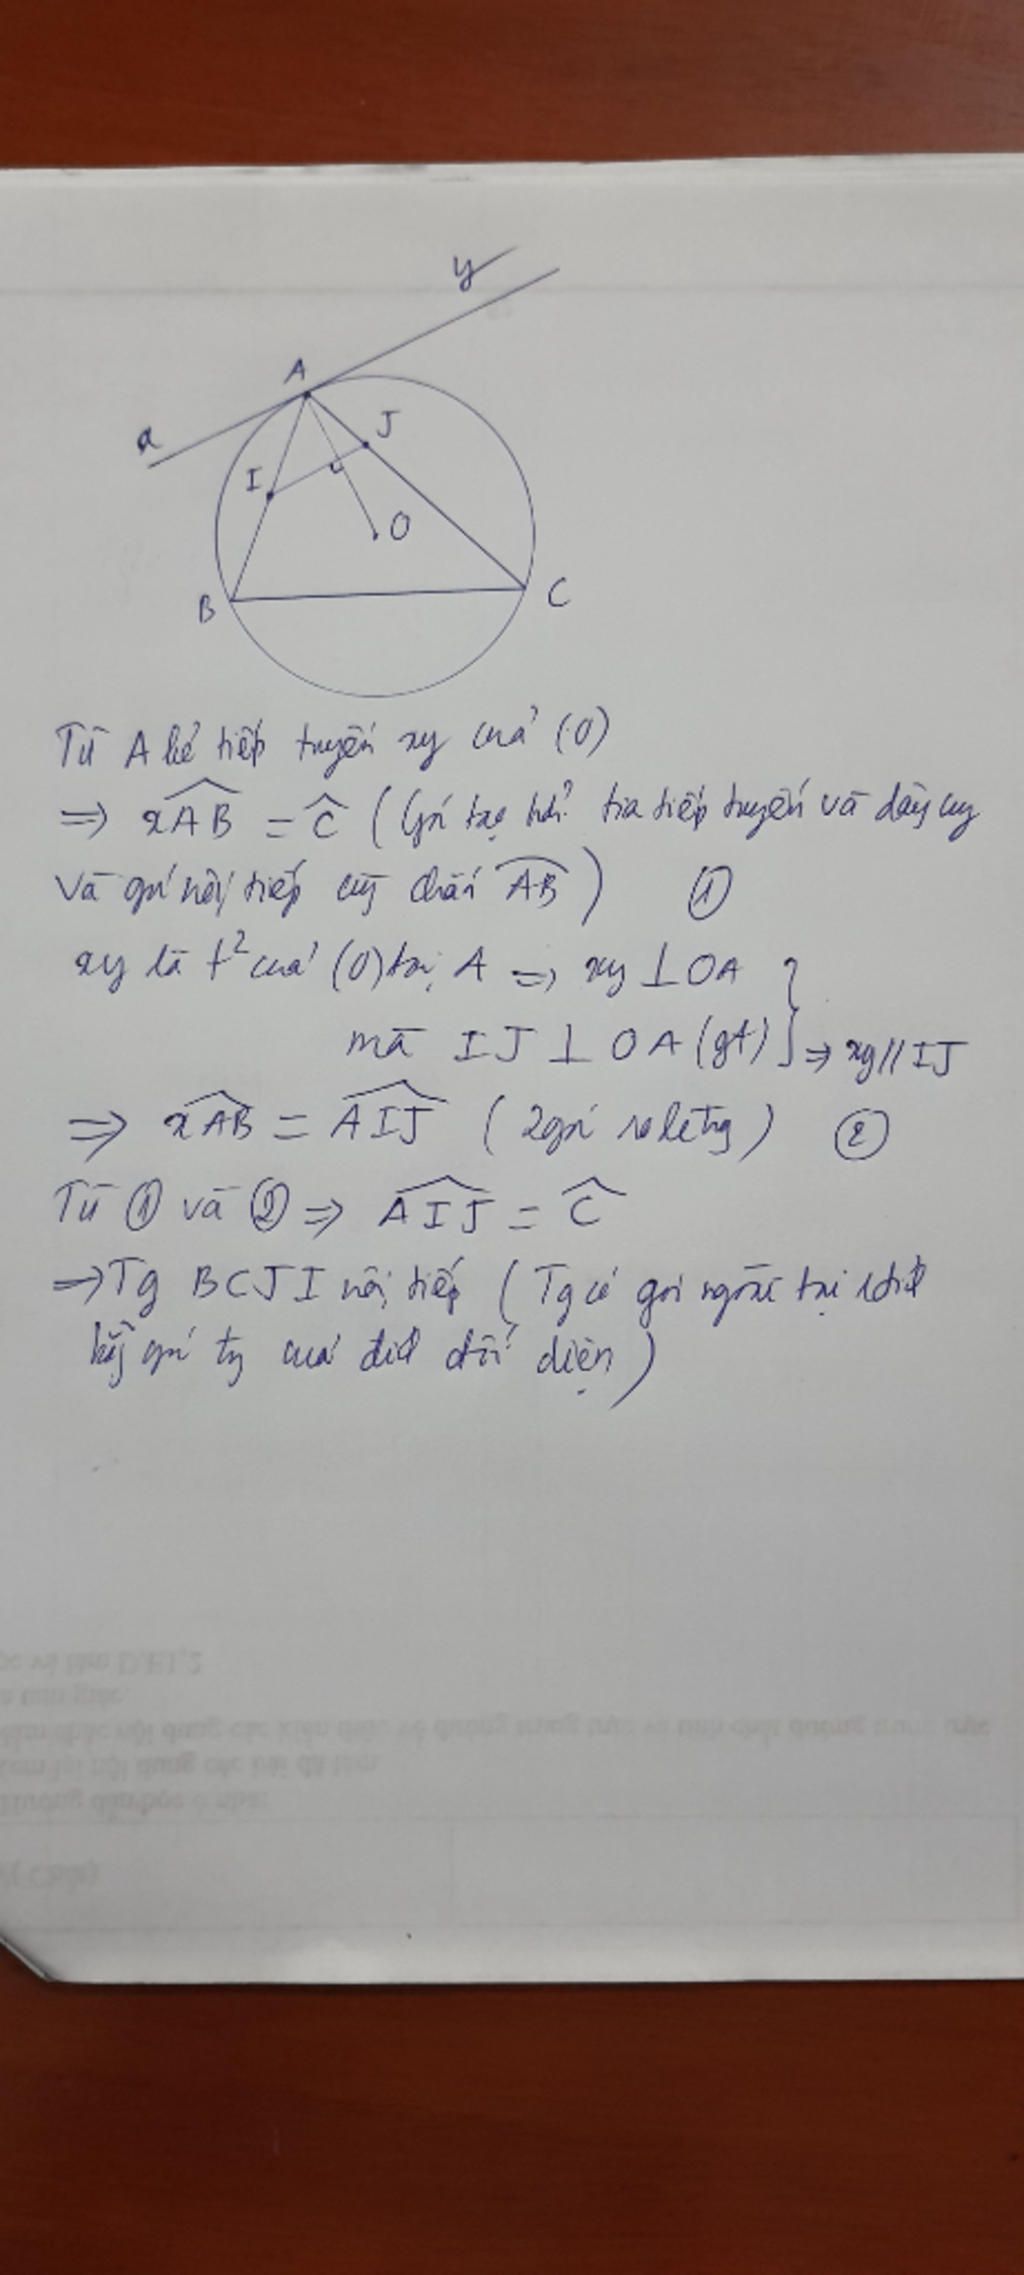 y
A
x
J
I
O
B
C
Từ A kẻ tiếp tuyến xy của (O)
=> xAB = C (Góc tạo bởi tia tiếp tuyến và dây cg
và góc nội tiếp cùg chắn AB) ①
xy là t² của (O) tại A => xy ⊥ OA
mà IJ ⊥ OA (gt) } => xy // IJ
=> xAB = AIJ (2 góc so le trg) ②
Từ ① và ② => AIJ = C
=> Tg BCJI nội tiếp (Tg có góc ngoài tại đỉnh
bằg góc tg của đỉnh đối diện)